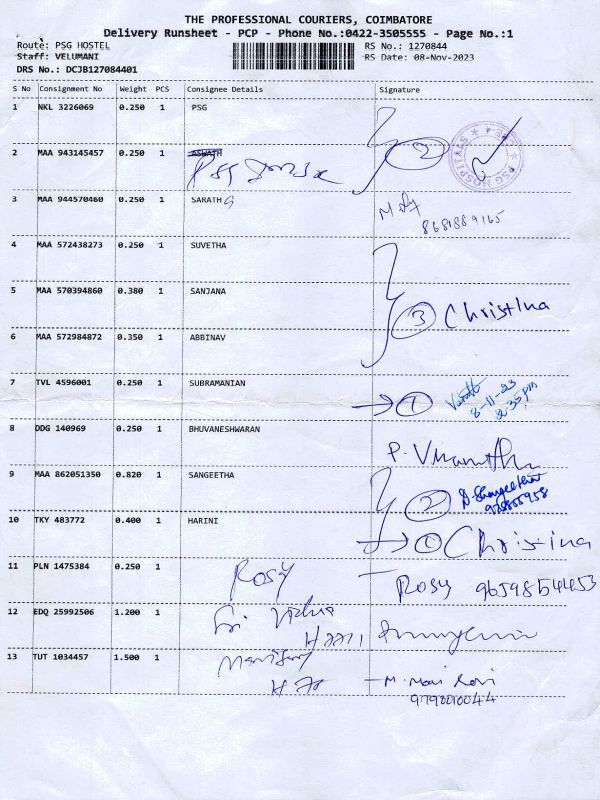 THE PROFESSIONAL COURIERS, COIMBATORE
Delivery Runsheet - PCP - Phone No.:0422-3505555 - Page No.:1
Route: PSG HOSTEL RS No.: 1270844
Staff: VELUMANI RS Date: 08-Nov-2023
DRS No.: DCJB127084401
S No Consignment No Weight PCS Consignee Details Signature
1 NKL 3226069 0.250 1 PSG
PSG HOSPITALS
2 MAA 943145457 0.250 1 ASWATH 2
PSG
3 MAA 944570460 0.250 1 SARATH G
4 MAA 572438273 0.250 1 SUVETHA
5 MAA 570394860 0.380 1 SANJANA
3 Christina
6 MAA 572984872 0.350 1 ABBINAV
7 TVL 4596001 0.250 1 SUBRAMANIAN
1 8-11-23
2.35pm
8 DDG 140969 0.250 1 BHUVANESHWARAN
9 MAA 862051350 0.820 1 SANGEETHA
2
10 TKY 483772 0.400 1 HARINI
1 Christina
11 PLN 1475384 0.250 1
Rosy Rosy 9659854453
12 EDQ 25992506 1.200 1
Sri Vidhya
13 TUT 1034457 1.500 1
M. Mani
9790010044